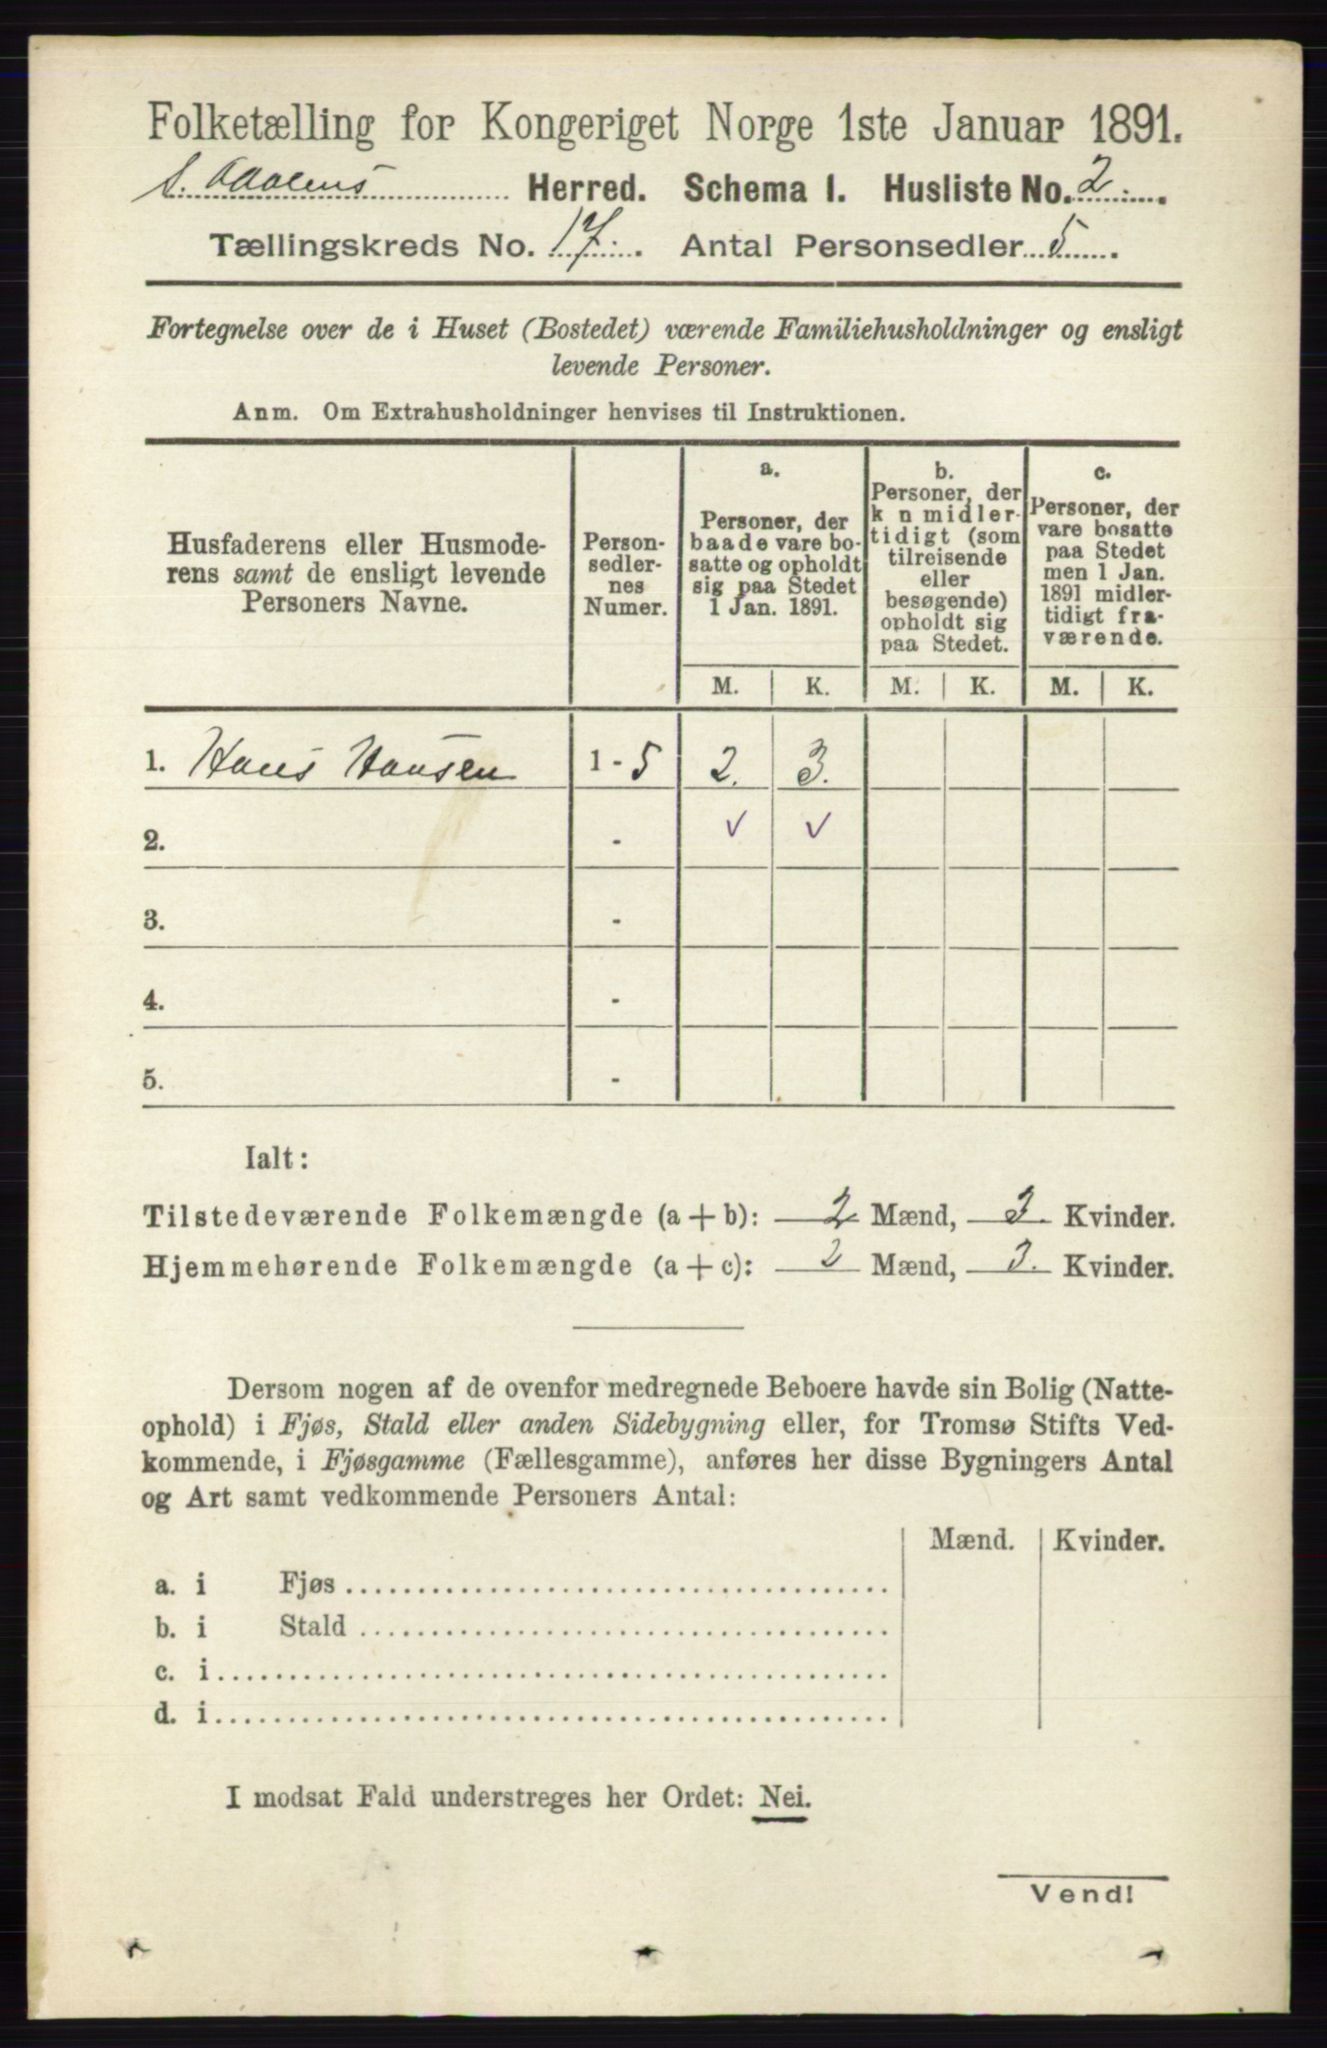 Folketælling for Kongeriget Norge 1ste Januar 1891.
S. Aadlens Herred. Schema I. Husliste No. 2.
Tællingskreds No. 17. Antal Personsedler 5
Fortegnelse over de i Huset (Bostedet) værende Familiehusholdninger og ensligt
levende Personer.
Anm. Om Extrahusholdninger henvises til Instruktionen.
Husfaderens eller Husmode-
rens samt de ensligt levende
Personers Navne.
Person-
sedler-
nes
Numer.
a.
Personer, der
baade vare bo-
satte og opholdt
sig paa Stedet
1 Jan. 1891.
b.
Personer, der
k n midler-
tidigt (som
tilreisende
eller
besøgende)
opholdt sig
paa Stedet.
c.
Personer, der
vare bosatte
paa Stedet
men 1 Jan.
1891 midler-
tidigt fra-
værende.
M. K. M. K. M. K.
1. Hans Hansen 1 - 5 2. 3.
2. - ✓ ✓
3. -
4. -
5. -
Ialt:
Tilstedeværende Folkemængde (a + b): 2 Mænd, 3. Kvinder.
Hjemmehørende Folkemængde (a + c): 2 Mænd, 3. Kvinder.
Dersom nogen af de ovenfor medregnede Beboere havde sin Bolig (Natte-
ophold) i Fjøs, Stald eller anden Sidebygning eller, for Tromsø Stifts Ved-
kommende, i Fjøsgamme (Fællesgamme), anføres her disse Bygningers Antal
og Art samt vedkommende Personers Antal:
Mænd. Kvinder.
a. i Fjøs
b. i Stald
c. i
d. i
I modsat Fald understreges her Ordet: Nei.
Vend!